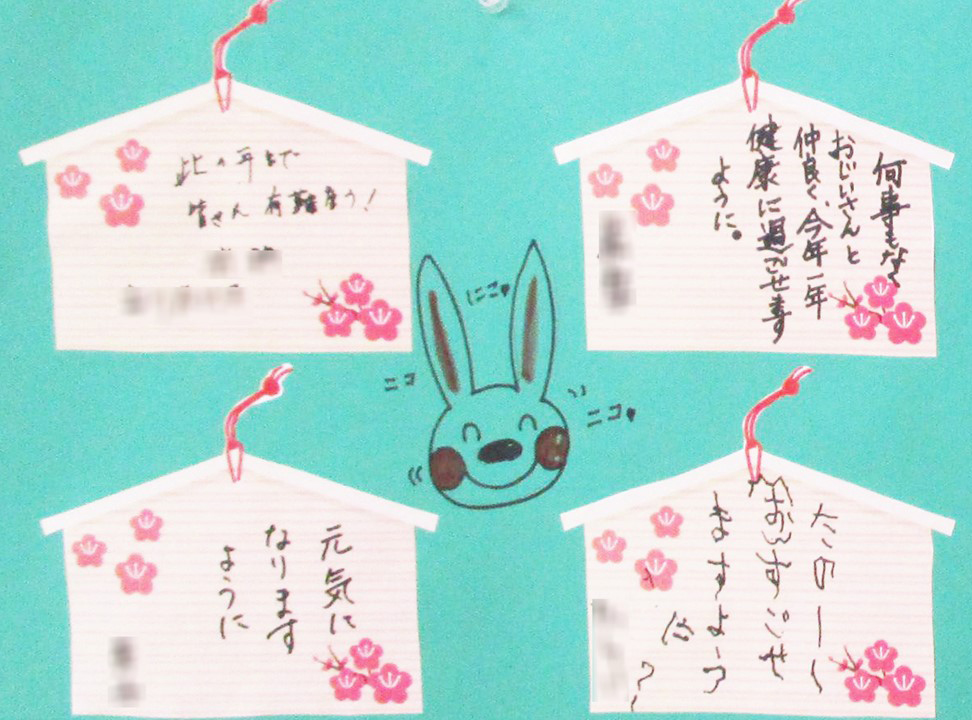 此の年まで
皆さん 有難う!
何事もなく
おじいさんと
仲良く、今年一年
健康に過ごせます
ように。
にこ
ニコ
ニコ
元気に
なります
ように
すごせ
ますよう
に